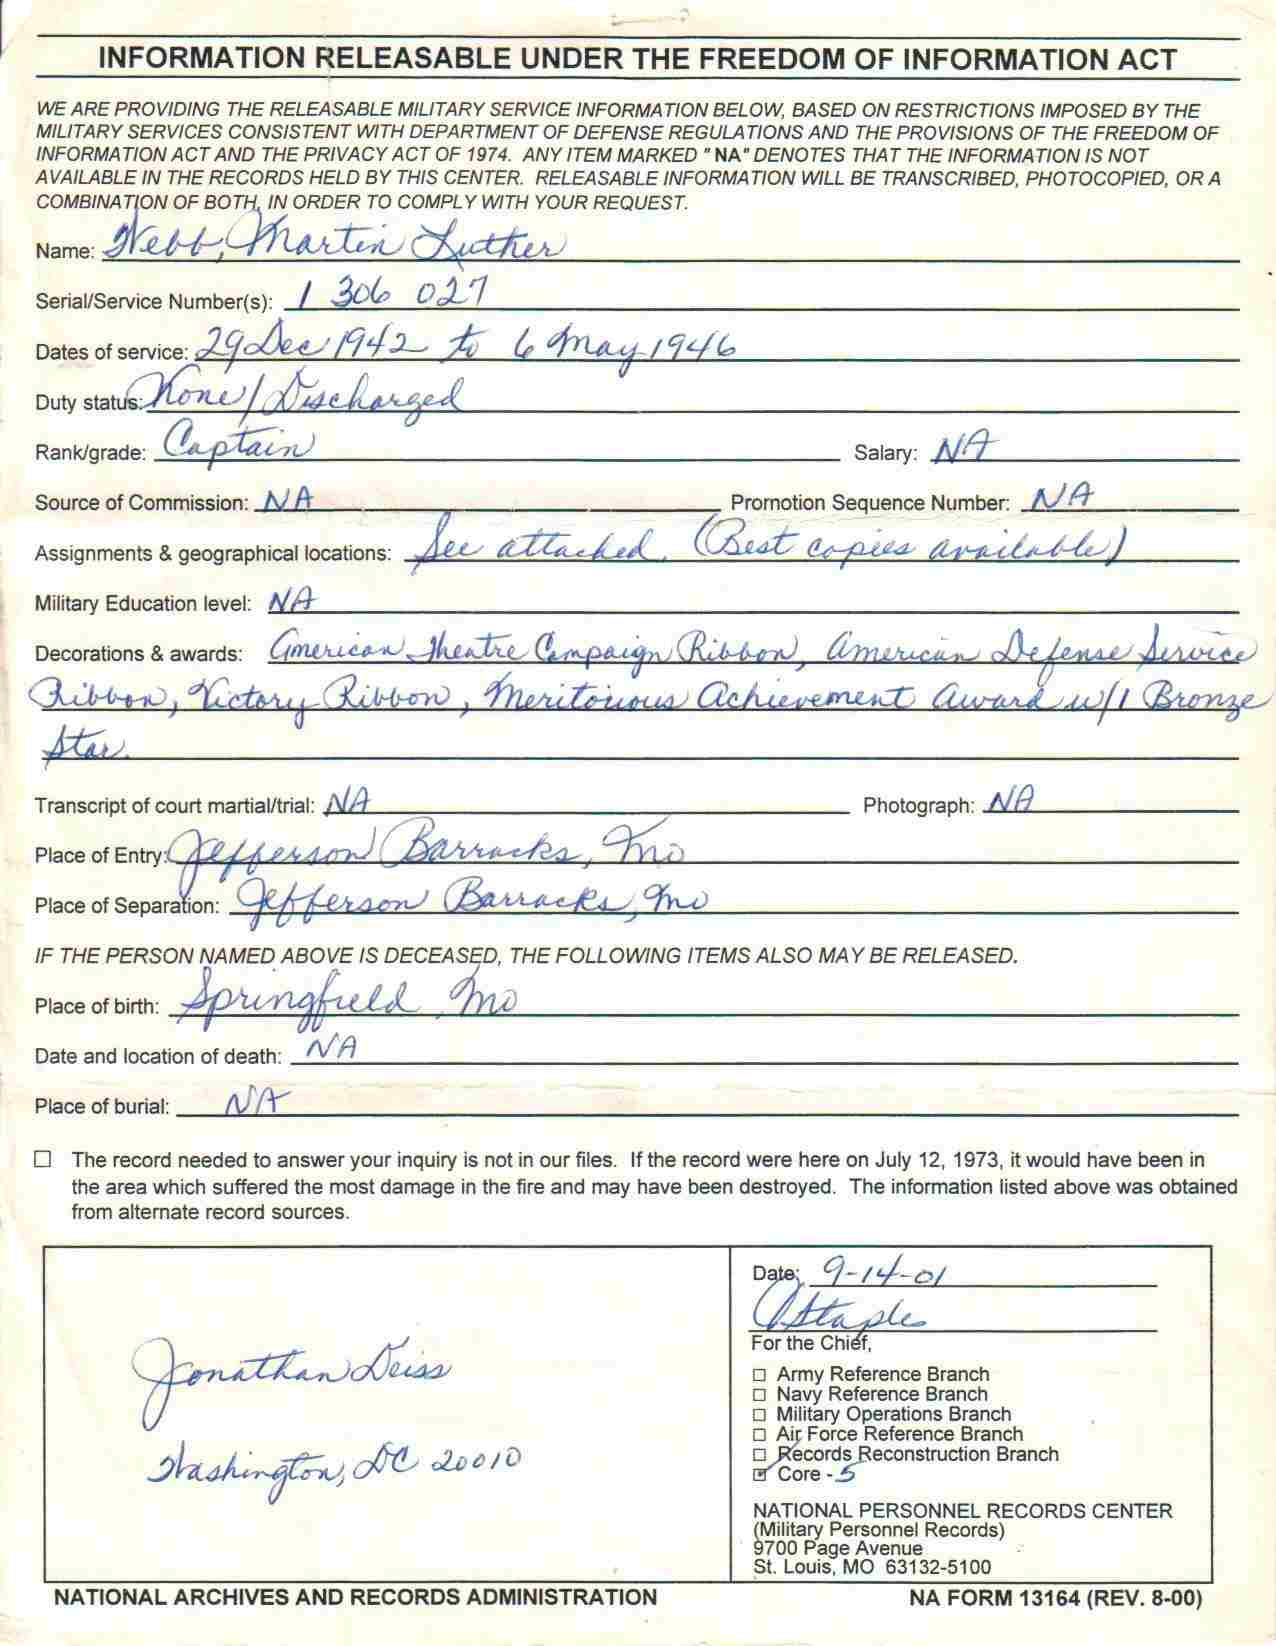 INFORMATION RELEASABLE UNDER THE FREEDOM OF INFORMATION ACT
WE ARE PROVIDING THE RELEASABLE MILITARY SERVICE INFORMATION BELOW, BASED ON RESTRICTIONS IMPOSED BY THE
MILITARY SERVICES CONSISTENT WITH DEPARTMENT OF DEFENSE REGULATIONS AND THE PROVISIONS OF THE FREEDOM OF
INFORMATION ACT AND THE PRIVACY ACT OF 1974. ANY ITEM MARKED "NA" DENOTES THAT THE INFORMATION IS NOT
AVAILABLE IN THE RECORDS HELD BY THIS CENTER. RELEASABLE INFORMATION WILL BE TRANSCRIBED, PHOTOCOPIED, OR A
COMBINATION OF BOTH, IN ORDER TO COMPLY WITH YOUR REQUEST.
Name: Webb, Martin Luther
Serial/Service Number(s): 1 306 027
Dates of service: 29 Dec 1942 to 6 May 1946
Duty status: None/Discharged
Rank/grade: Captain Salary: NA
Source of Commission: NA Promotion Sequence Number: NA
Assignments & geographical locations: See attached. (Best copies available)
Military Education level: NA
Decorations & awards: American Theatre Campaign Ribbon, American Defense Service
Ribbon, Victory Ribbon, Meritorious Achievement Award w/1 Bronze
Star.
Transcript of court martial/trial: NA Photograph: NA
Place of Entry: Jefferson Barracks, Mo
Place of Separation: Jefferson Barracks, Mo
IF THE PERSON NAMED ABOVE IS DECEASED, THE FOLLOWING ITEMS ALSO MAY BE RELEASED.
Place of birth: Springfield, Mo
Date and location of death: NA
Place of burial: NA
☐ The record needed to answer your inquiry is not in our files. If the record were here on July 12, 1973, it would have been in
the area which suffered the most damage in the fire and may have been destroyed. The information listed above was obtained
from alternate record sources.
Jonathan Deiss
Washington, DC 20010
Date: 9-14-01
Staples
For the Chief,
☐ Army Reference Branch
☐ Navy Reference Branch
☐ Military Operations Branch
☐ Air Force Reference Branch
☐ Records Reconstruction Branch
☑ Core - 5
NATIONAL PERSONNEL RECORDS CENTER
(Military Personnel Records)
9700 Page Avenue
St. Louis, MO 63132-5100
NATIONAL ARCHIVES AND RECORDS ADMINISTRATION NA FORM 13164 (REV. 8-00)